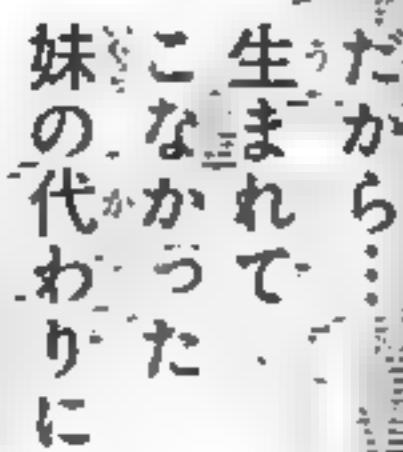 だから…
生まれて
こなかった
妹の代わりに